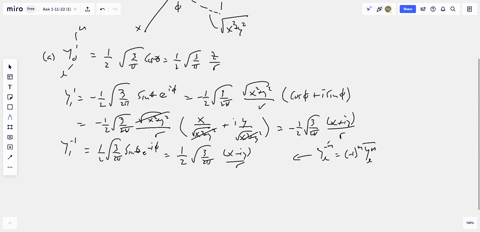 miro
free
Ask 1-11-22 (1)
Share
x
φ
√x²+y²
m
(a) Y₁⁰ = 1/2 √(3/π) cosθ = 1/2 √(3/π) z/r
l
Y₁¹ = -1/2 √(3/2π) sinθ e^{iφ} = -1/2 √(3/2π) √(x²+y²)/r (cosφ + i sinφ)
= -1/2 √(3/2π) √(x²+y²)/r (x/√(x²+y²) + i y/√(x²+y²)) = -1/2 √(3/2π) (x+iy)/r
Y₁⁻¹ = 1/2 √(3/2π) sinθ e^{-iφ} = 1/2 √(3/2π) (x-iy)/r ← Y_l^{-m} = (-1)^m \overline{Y_l^m}
100%